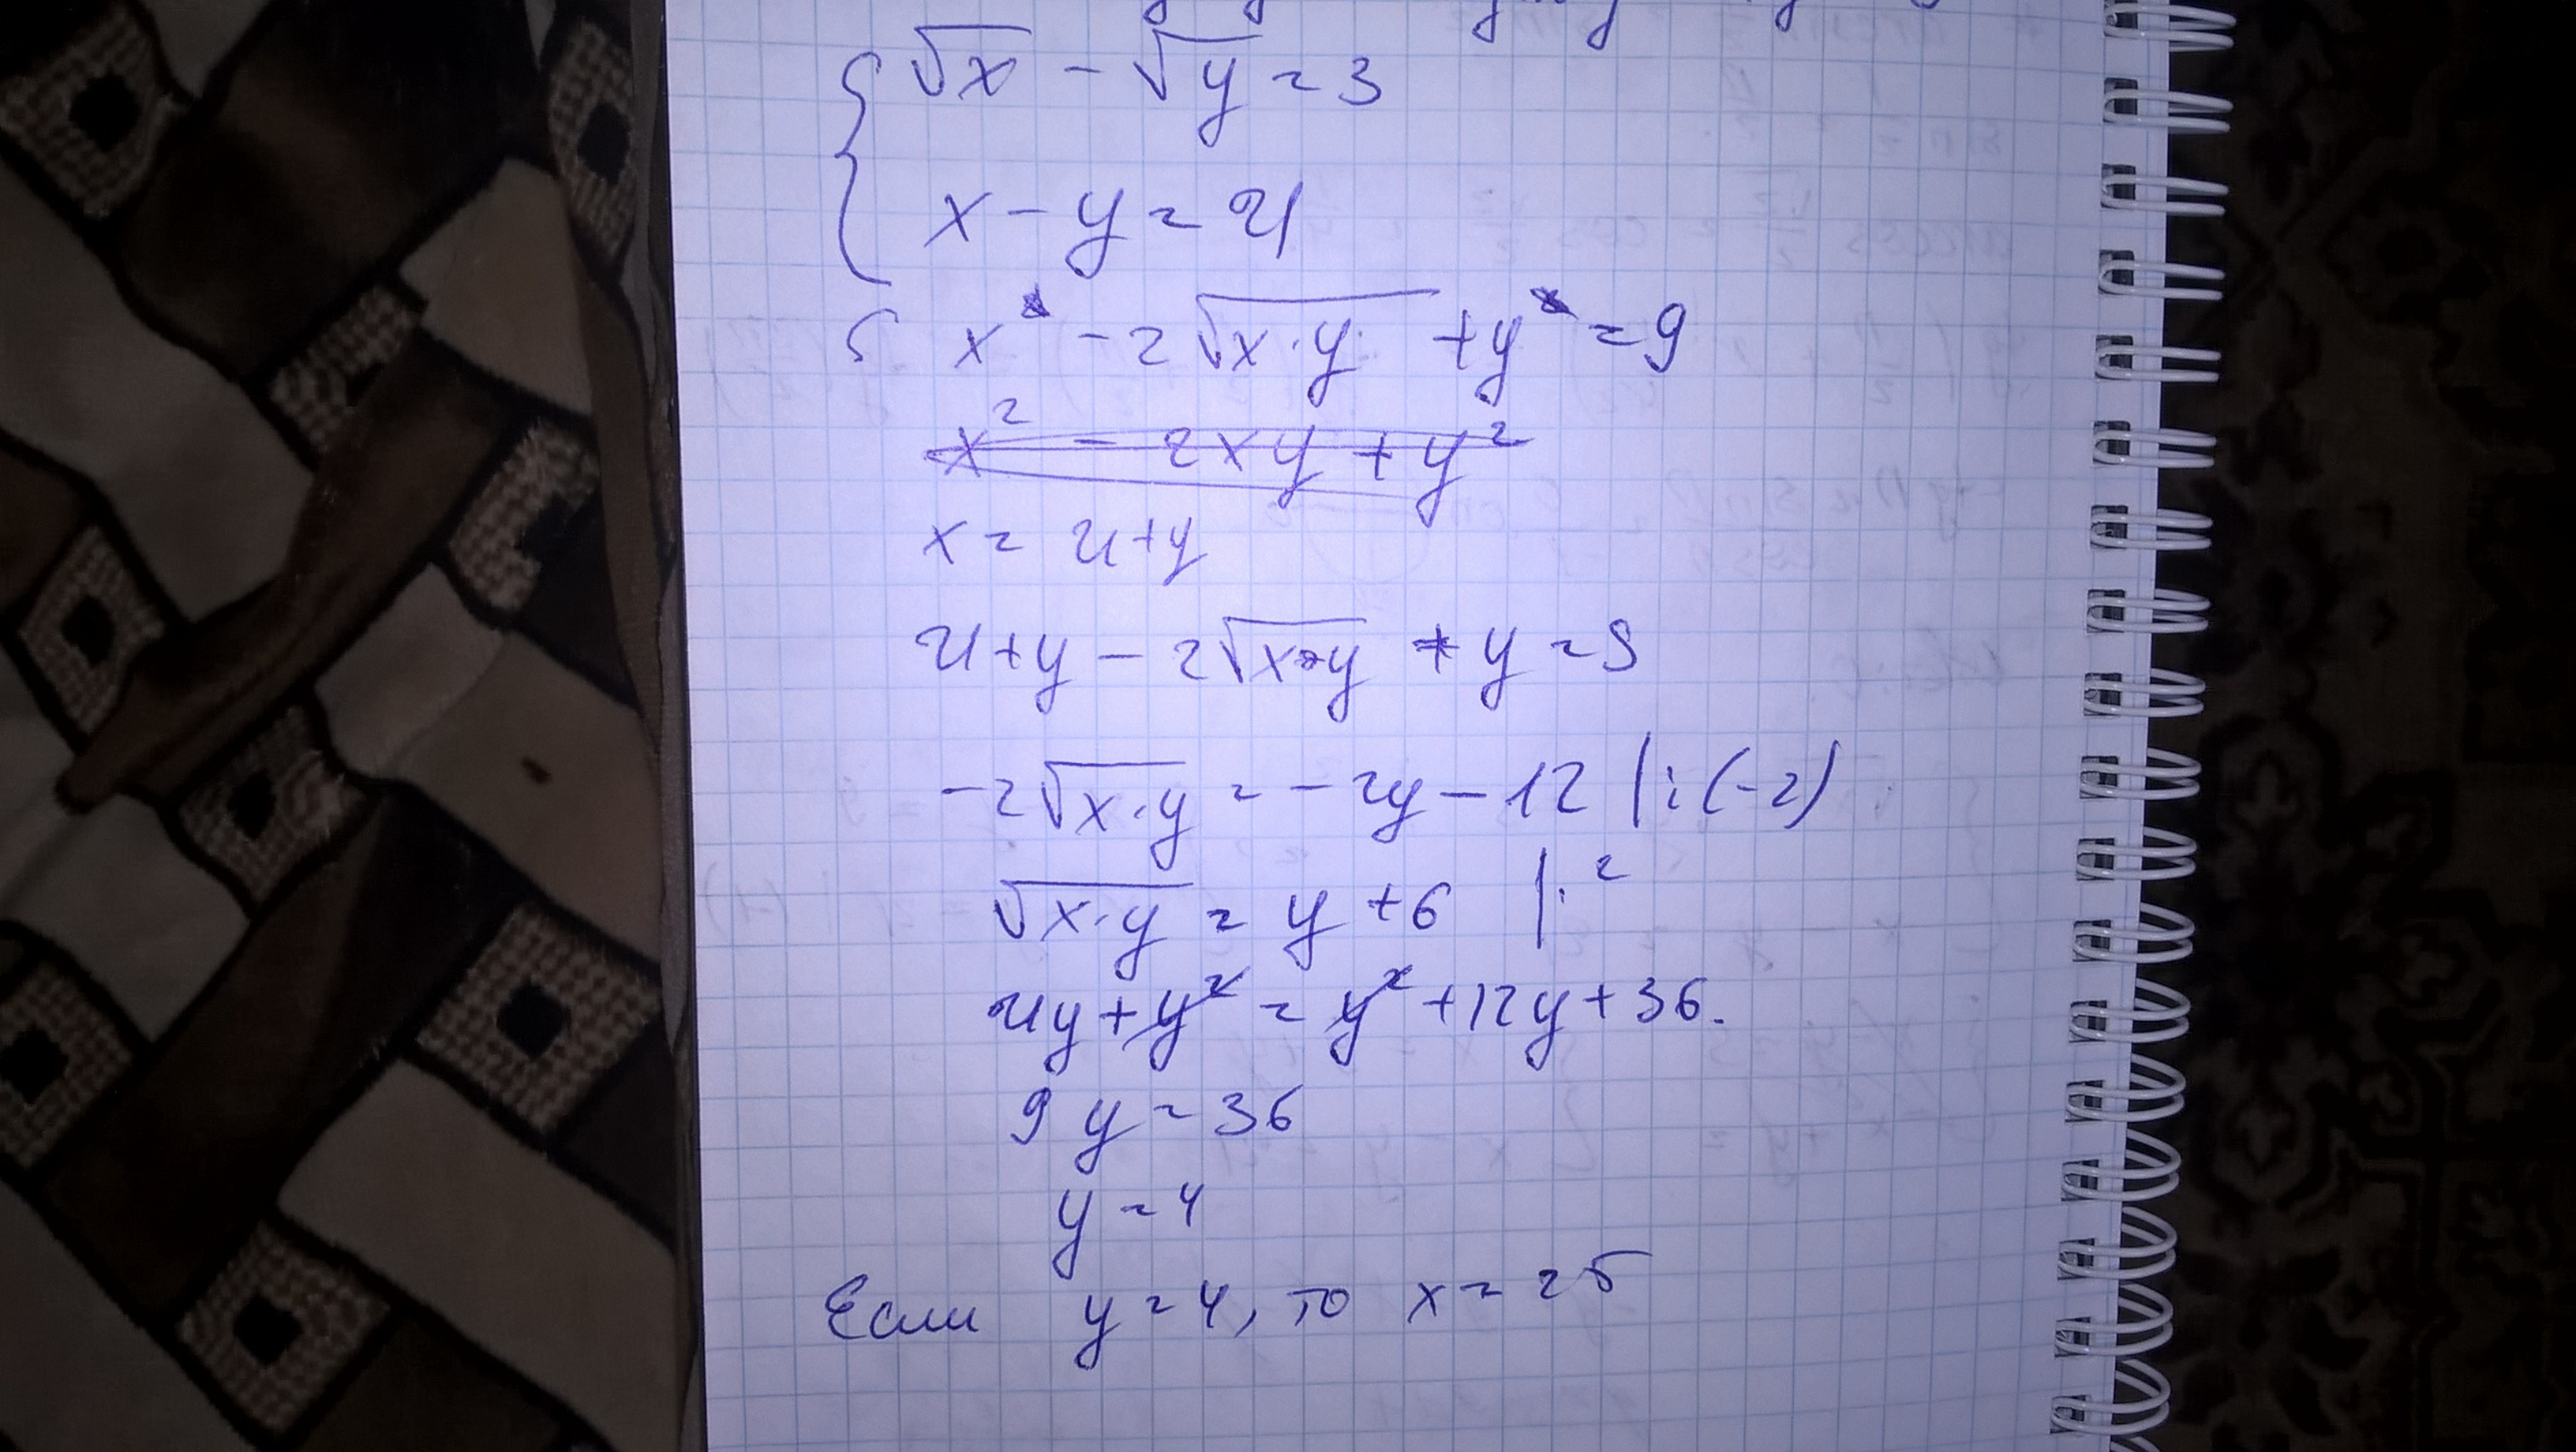 √x - √y = 3
x - y = 21
x - 2√x·y + y = 9
x² - 2xy + y²
x = 21+y
21+y - 2√x·y + y = 9
-2√x·y = -2y - 12 |:(-2)
√x·y = y + 6 |·²
21y + y² = y² + 12y + 36.
9y = 36
y = 4
Если y = 4, то x = 25